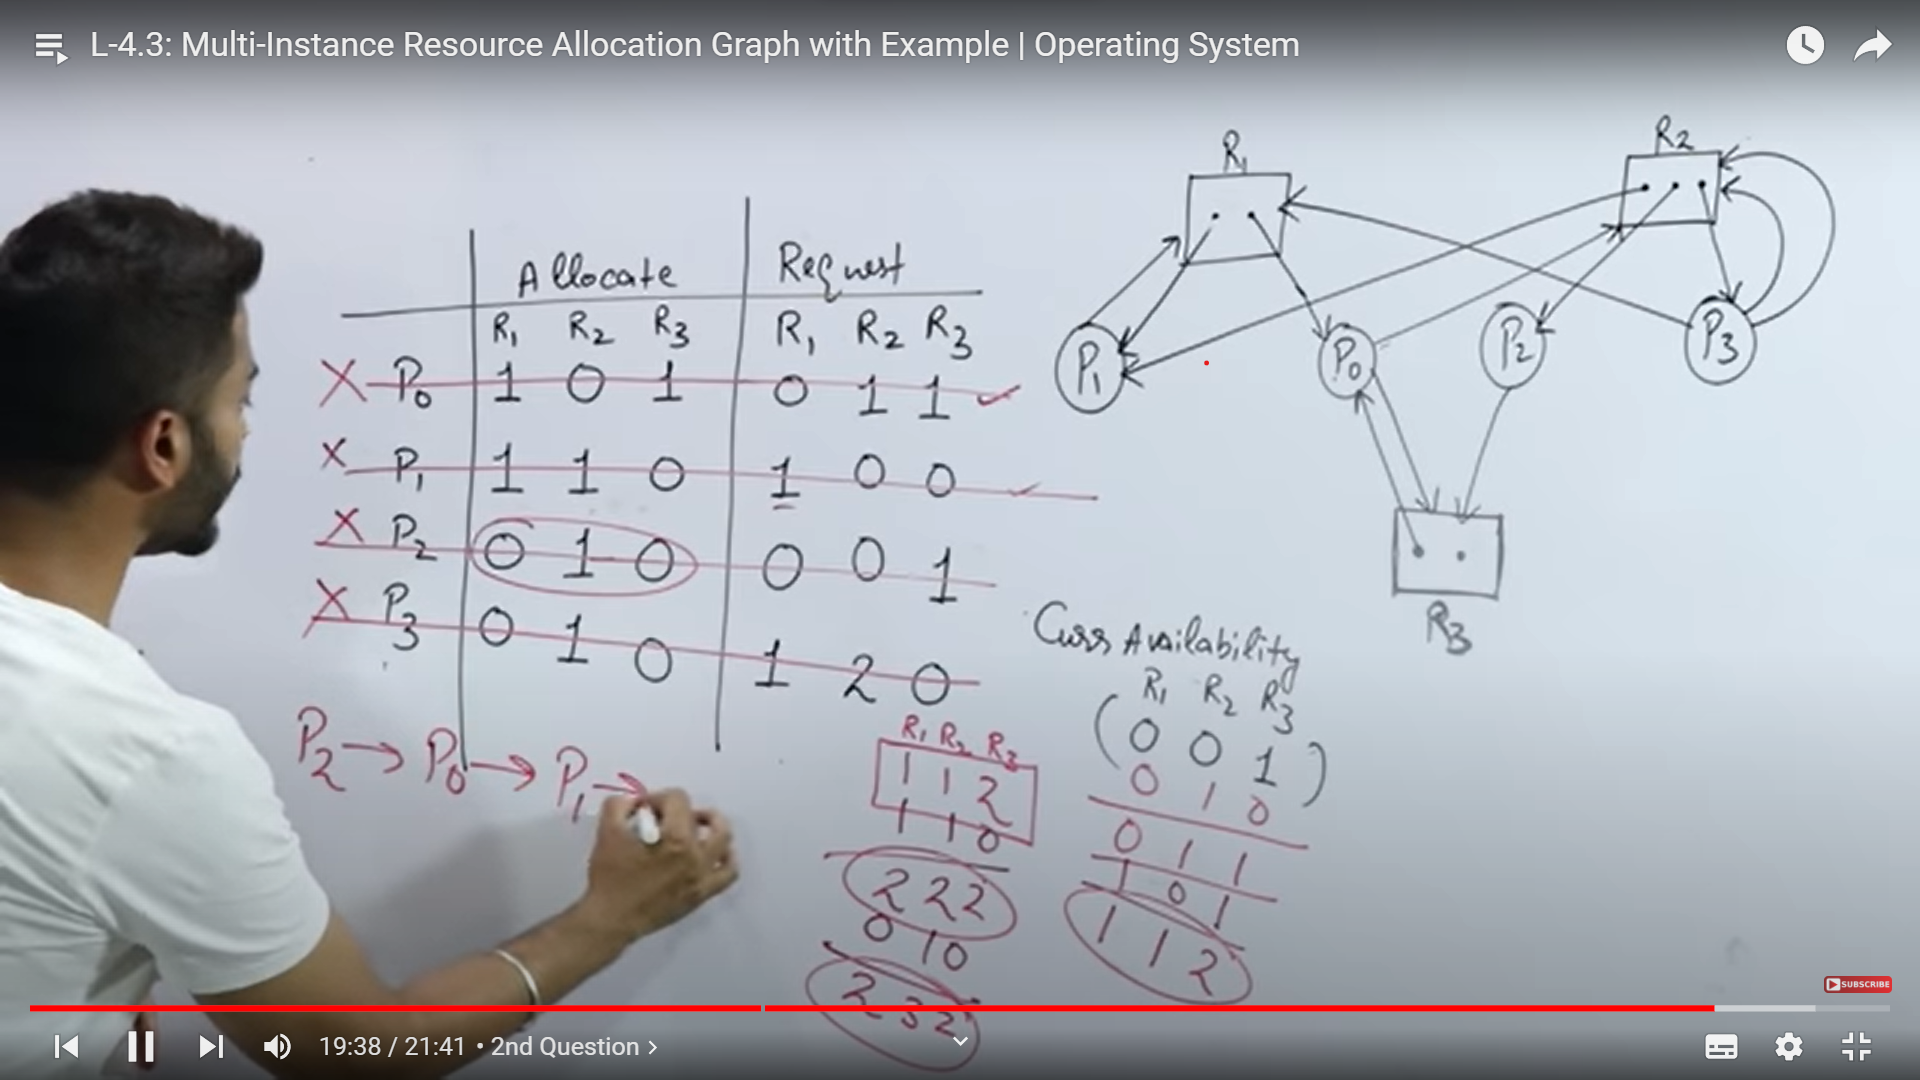 L-4.3: Multi-Instance Resource Allocation Graph with Example | Operating System
R1
R2
Allocate Request
R1 R2 R3 R1 R2 R3
X P0 1 0 1 0 1 1 ✓
X P1 1 1 0 1 0 0 ✓
X P2 0 1 0 0 0 1
X P3 0 1 0 1 2 0
P1 P0 P2 P3
R3
P2 → P0 → P1 →
Curr Availability
R1 R2 R3
(0 0 1)
0 1 0
0 1 1
1 0 1
1 1 2
R1 R2 R3
1 1 2
1 1 0
2 2 2
0 1 0
2 3 2
SUBSCRIBE
19:38 / 21:41 • 2nd Question >